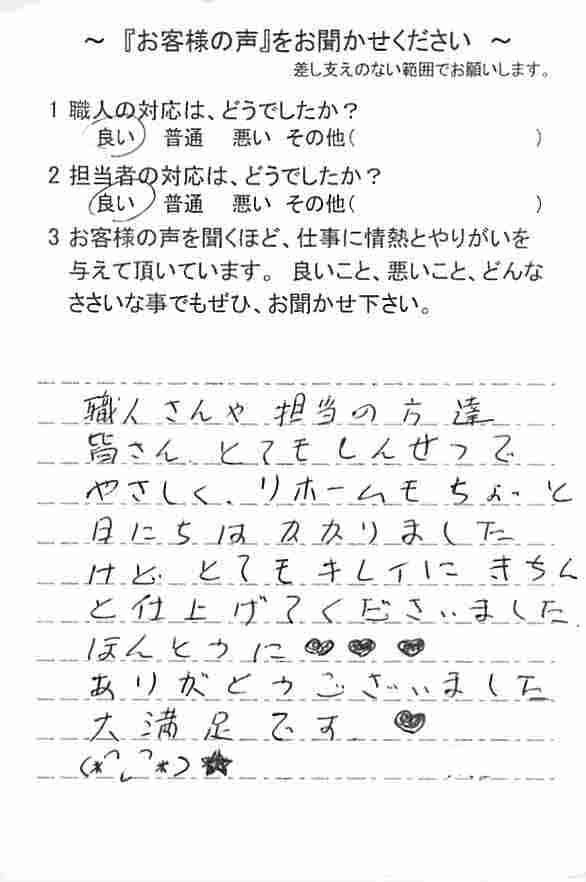 ～ 『お客様の声』をお聞かせください ～
差し支えのない範囲でお願いします。
1 職人の対応は、どうでしたか？
良い 普通 悪い その他( )
2 担当者の対応は、どうでしたか？
良い 普通 悪い その他( )
3 お客様の声を聞くほど、仕事に情熱とやりがいを
与えて頂いています。 良いこと、悪いこと、どんな
ささいな事でもぜひ、お聞かせ下さい。
職人さんや担当の方達
皆さん、とてもしんせつで
やさしく、リホームもちょっと
日にちはカカリました
けど、とてもキレイにきちん
と仕上げてくださいました。
ほんとうに ♥ ♥ ♥
ありがとうございました
大満足です。 ♥
(*^_^*) ★